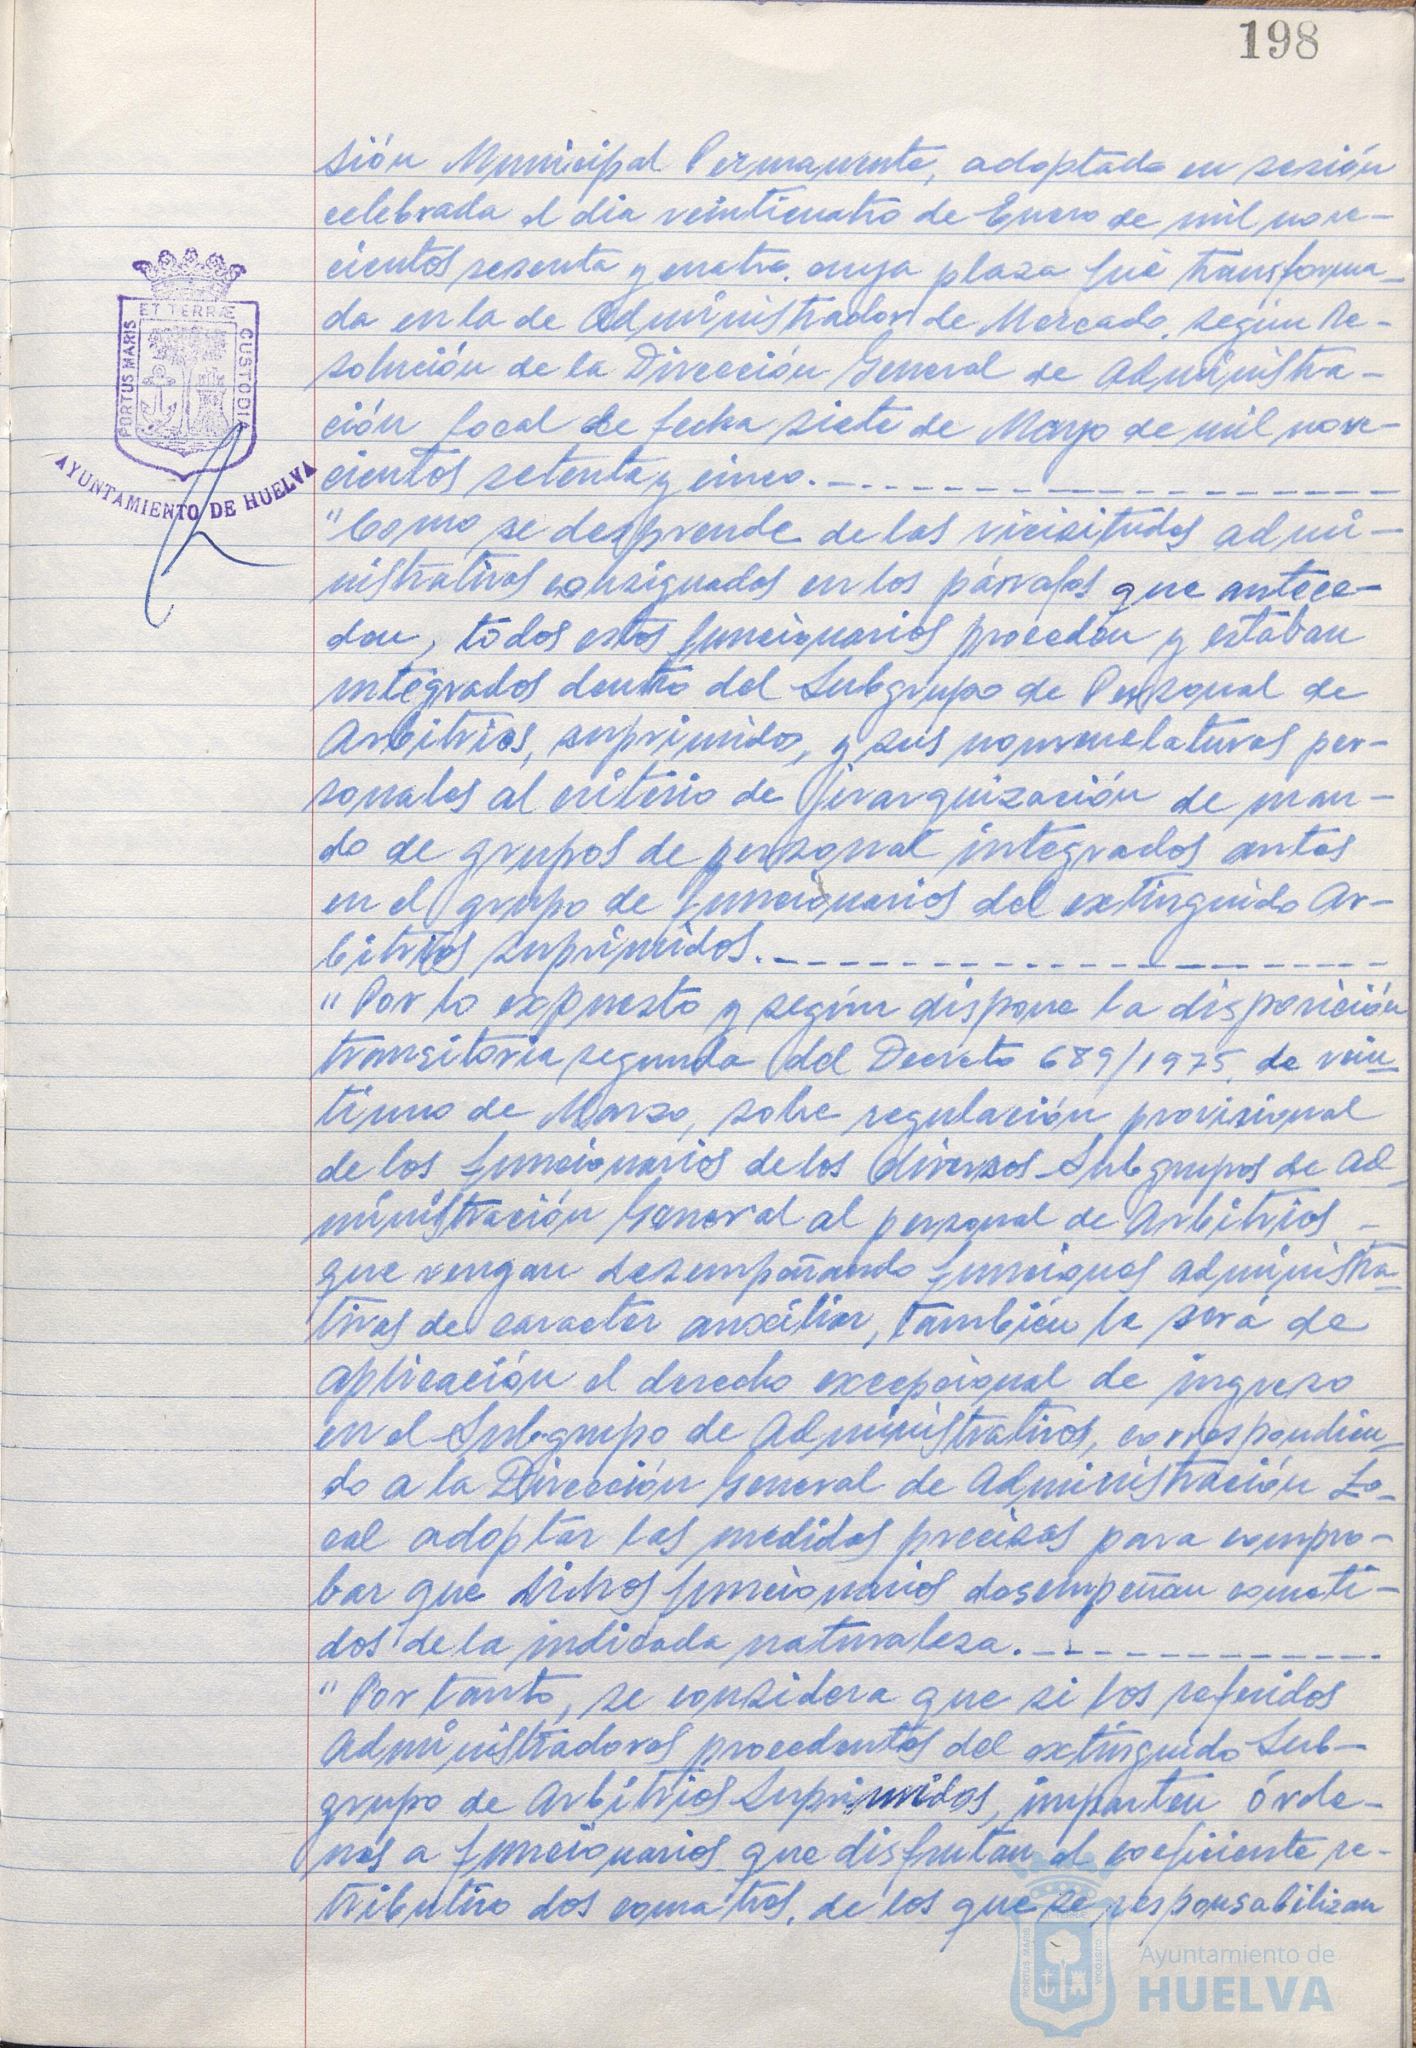 198
sión Municipal Permanente, adoptada en sesión
celebrada el dia veinticuatro de Enero de mil nove-
cientos sesenta y cuatro, cuya plaza fué transforma-
da en la de Administrador de Mercado, según Re-
solución de la Dirección General de Administra-
ción Local de fecha siete de Mayo de mil nove-
cientos setenta y cinco.
"Como se desprende de las vicisitudes admi-
nistrativas consignadas en los párrafos que antece-
den, todos estos funcionarios proceden y estaban
integrados dentro del Subgrupo de Personal de
Arbitrios, suprimido, y sus nomenclaturas per-
sonales al criterio de jerarquización de man-
do de grupos de personal integrados antes
en el grupo de funcionarios del extinguido Ar-
bitrios suprimidos.
"Por lo expuesto y según dispone la disposición
transitoria segunda del Decreto 689/1975, de vein-
tiuno de Marzo, sobre regulación provisional
de los funcionarios de los diversos Subgrupos de Ad-
ministración General al personal de Arbitrios -
que vengan desempeñando funciones administra-
tivas de caracter auxiliar, también le será de
aplicación el derecho excepcional de ingreso
en el Subgrupo de Administrativos, correspondien-
do a la Dirección General de Administración Lo-
cal adoptar las medidas precisas para compro-
bar que dichos funcionarios desempeñan cometi-
dos de la indicada naturaleza.
"Por tanto, se considera que si los referidos
Administradores procedentes del extinguido Sub-
grupo de Arbitrios Suprimidos, imparten órde-
nes a funcionarios que disfrutan el coeficiente re-
tributivo dos coma tres, de los que se responsabilizan
ET TERRÆ
PORTUS MARIS
CUSTODI
AYUNTAMIENTO DE HUELVA
PORTUS MARIS
CUSTODIA
Ayuntamiento de
HUELVA